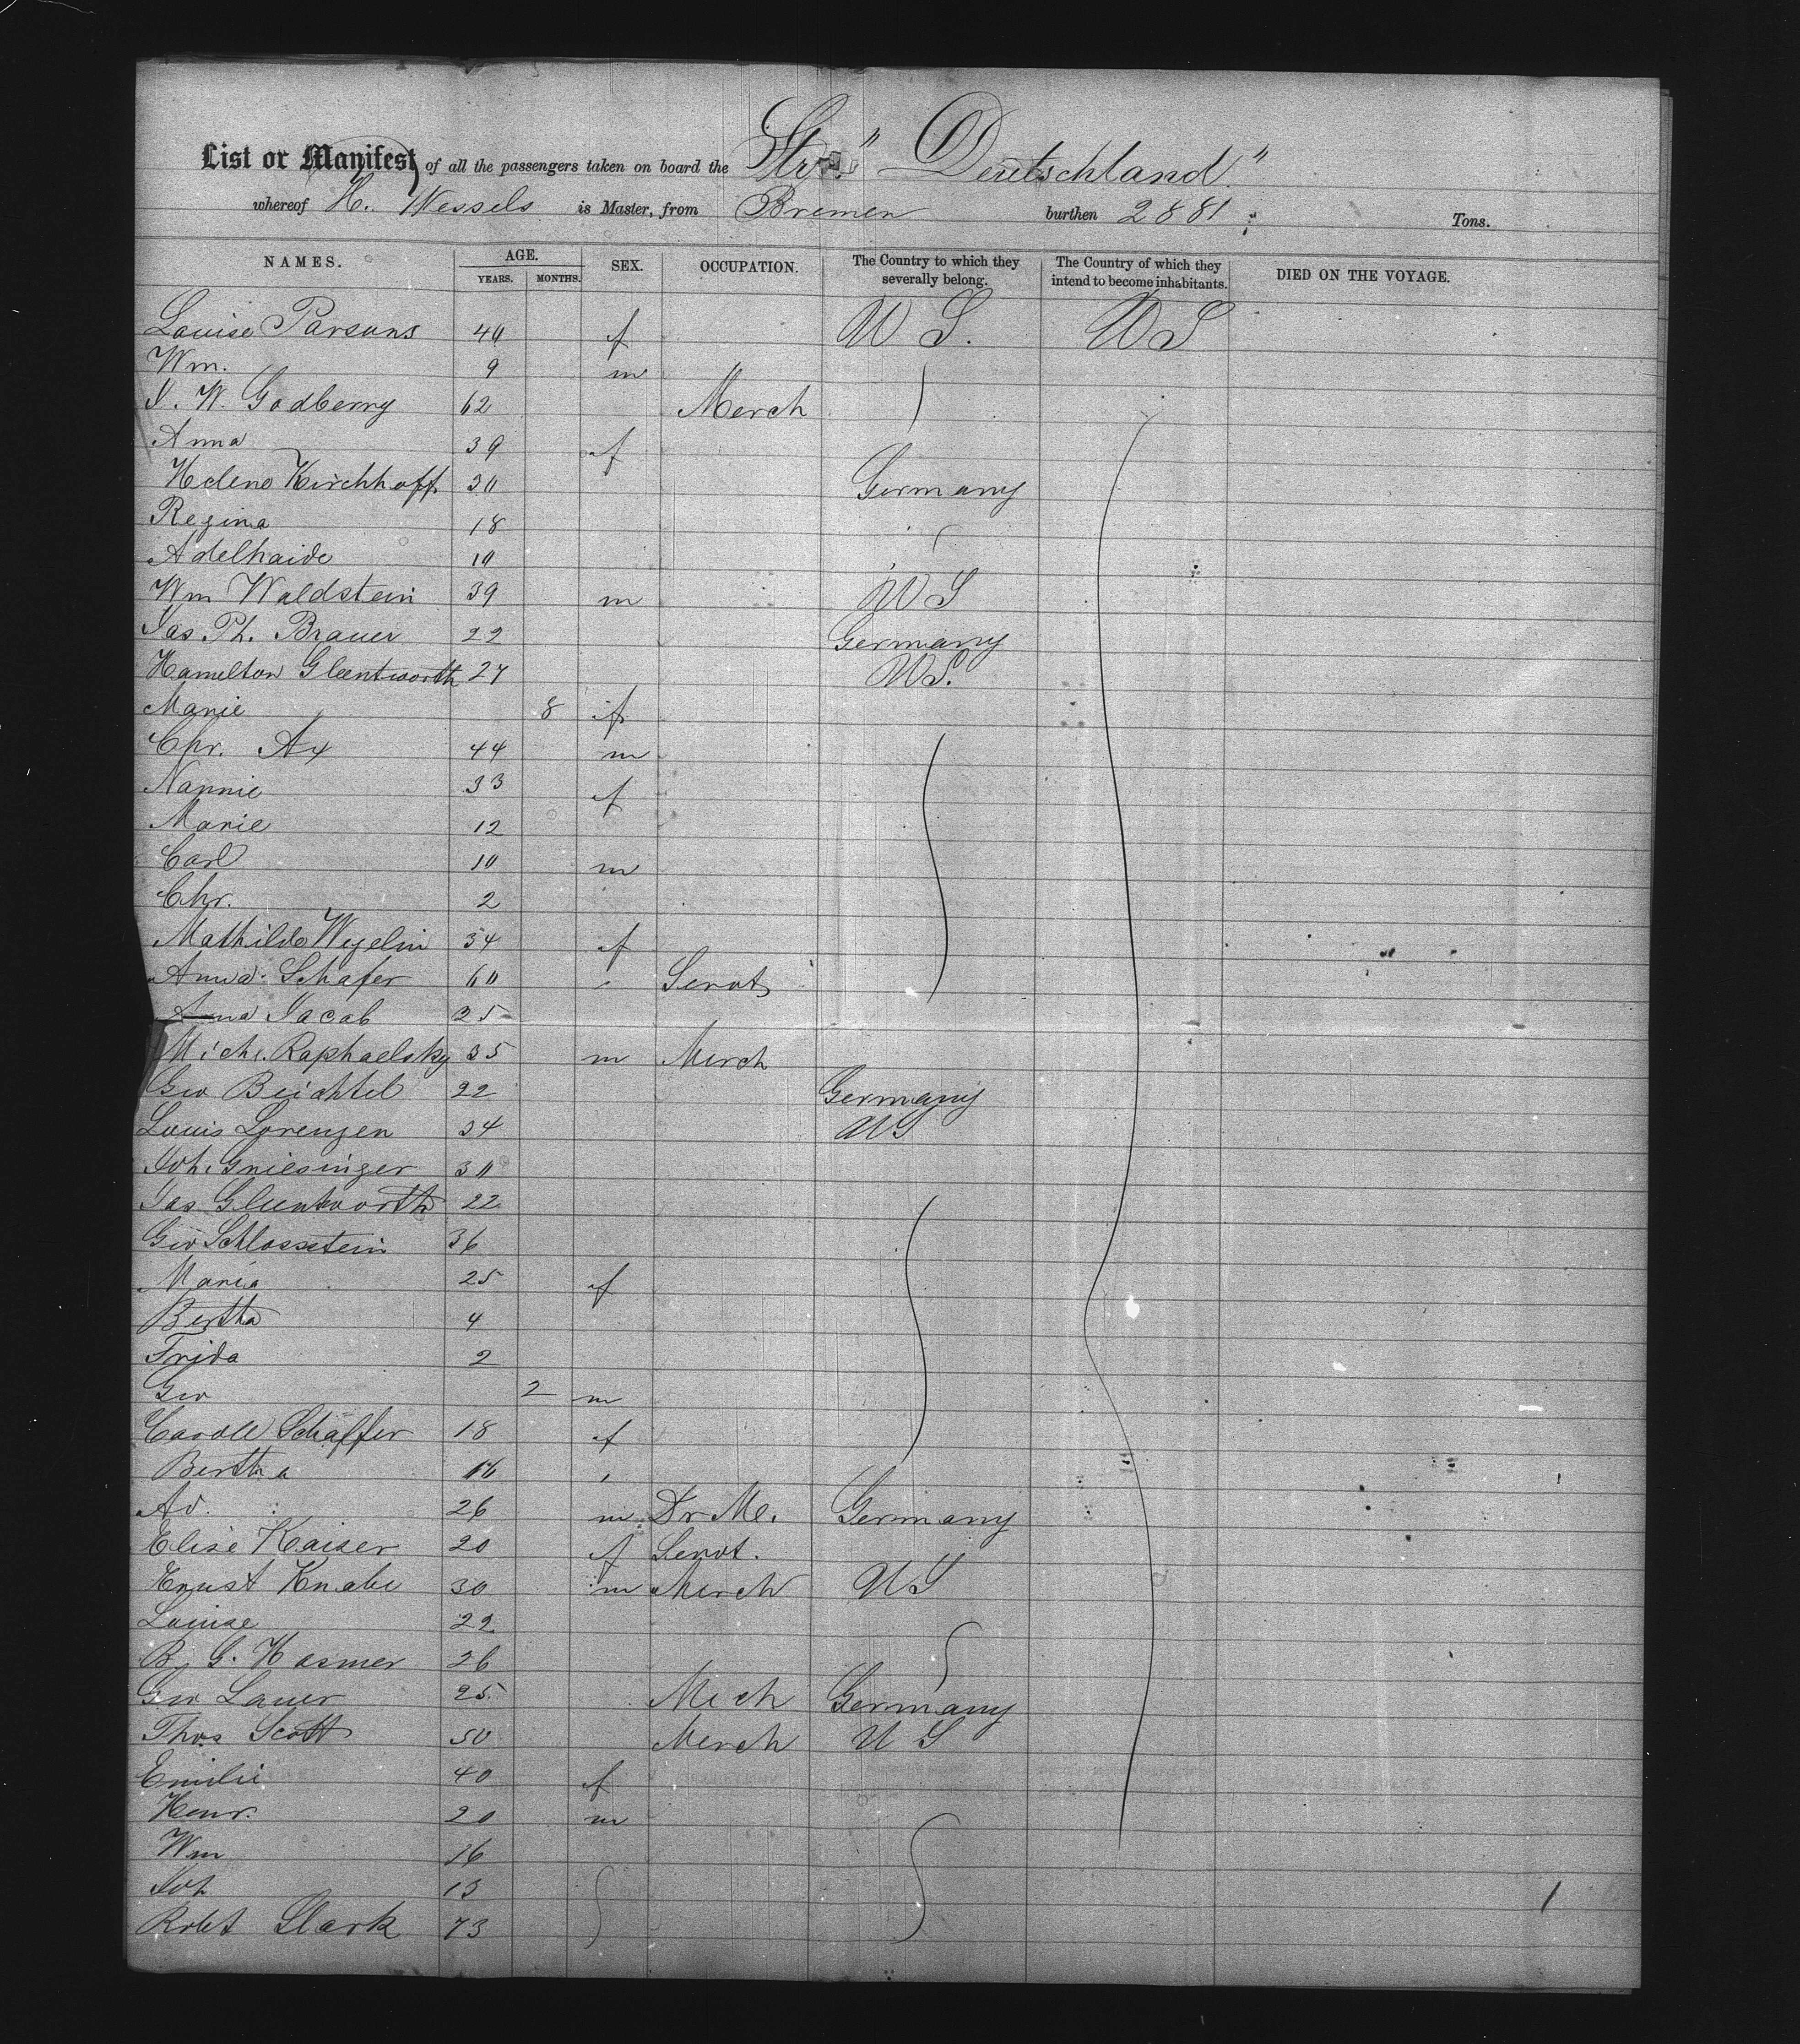 List or Manifest of all the passengers taken on board the Str. "Deutschland"
whereof H. Wessels is Master, from Bremen burthen 2881 Tons.
NAMES. AGE. SEX. OCCUPATION. The Country to which they severally belong. The Country of which they intend to become inhabitants. DIED ON THE VOYAGE.
YEARS. MONTHS.
Louise Parsons 40 f U S. U S
Wm. 9 m
W. Godberry 62 Merch
Anna 39 f
Helene Kirchhoff 30 Germany
Regina 18
Adelhaide 10
Wm Waldstein 39 m U S
Jas. Ph. Brauer 22 Germany
Hamilton Glentworth 27 U S.
Marie 8 f
Chr. Ax 44 m
Nannie 33 f
Marie 12
Carl 10 m
Chr. 2
Mathilde Wegelin 34 f
Anna Schafer 60 " Servt
Anna Jacob 25
Mich. Raphaelsky 35 m Merch
Geo Beichtel 22 Germany
Louis Lorenzen 34 U S
Joh. Griesinger 30
Jas Glentworth 22
Geo Schlosstein 36
Maria 25 f
Bertha 4
Frida 2
Geo 2 m
Carole Schäffer 18 f
Bertha 16 "
Ad. 26 m Dr Me. Germany
Elise Kaiser 20 f Servt.
Ernst Knabe 30 m Merch U S
Louise 22
B. G. Hasmer 26
Geo Lauer 25 Mech Germany
Thos Scott 50 Merch U S
Emilie 40 f
Henr. 20 m
Wm 16
Joh 13
Robt Clark 73